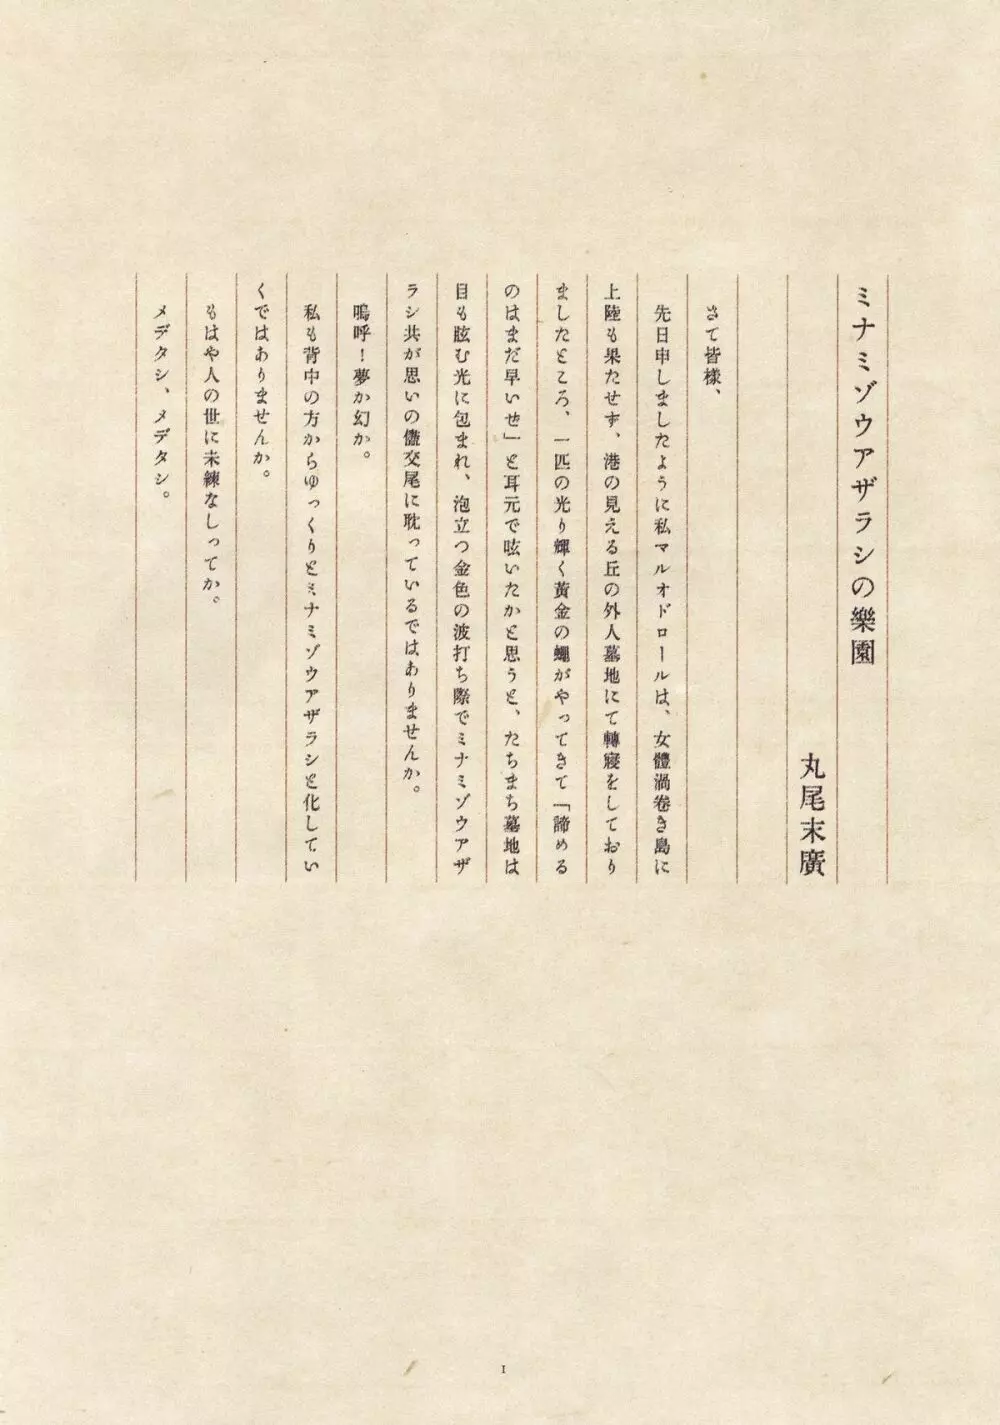 ミナミゾウアザラシの樂園
丸尾末廣
さて皆様、
先日申しましたように私マルオドロールは、女體渦巻き島に
上陸も果たせず、港の見える丘の外人墓地にて轉寢をしており
ましたところ、一匹の光り輝く黃金の蠅がやってきて「諦める
のはまだ早いぜ」と耳元で呟いたかと思うと、たちまち墓地は
目も眩む光に包まれ、泡立つ金色の波打ち際でミナミゾウアザ
ラシ共が思いの儘交尾に耽っているではありませんか。
嗚呼！夢か幻か。
私も背中の方からゆっくりとミナミゾウアザラシと化してい
くではありませんか。
もはや人の世に未練なしってか。
メデタシ、メデタシ。
1